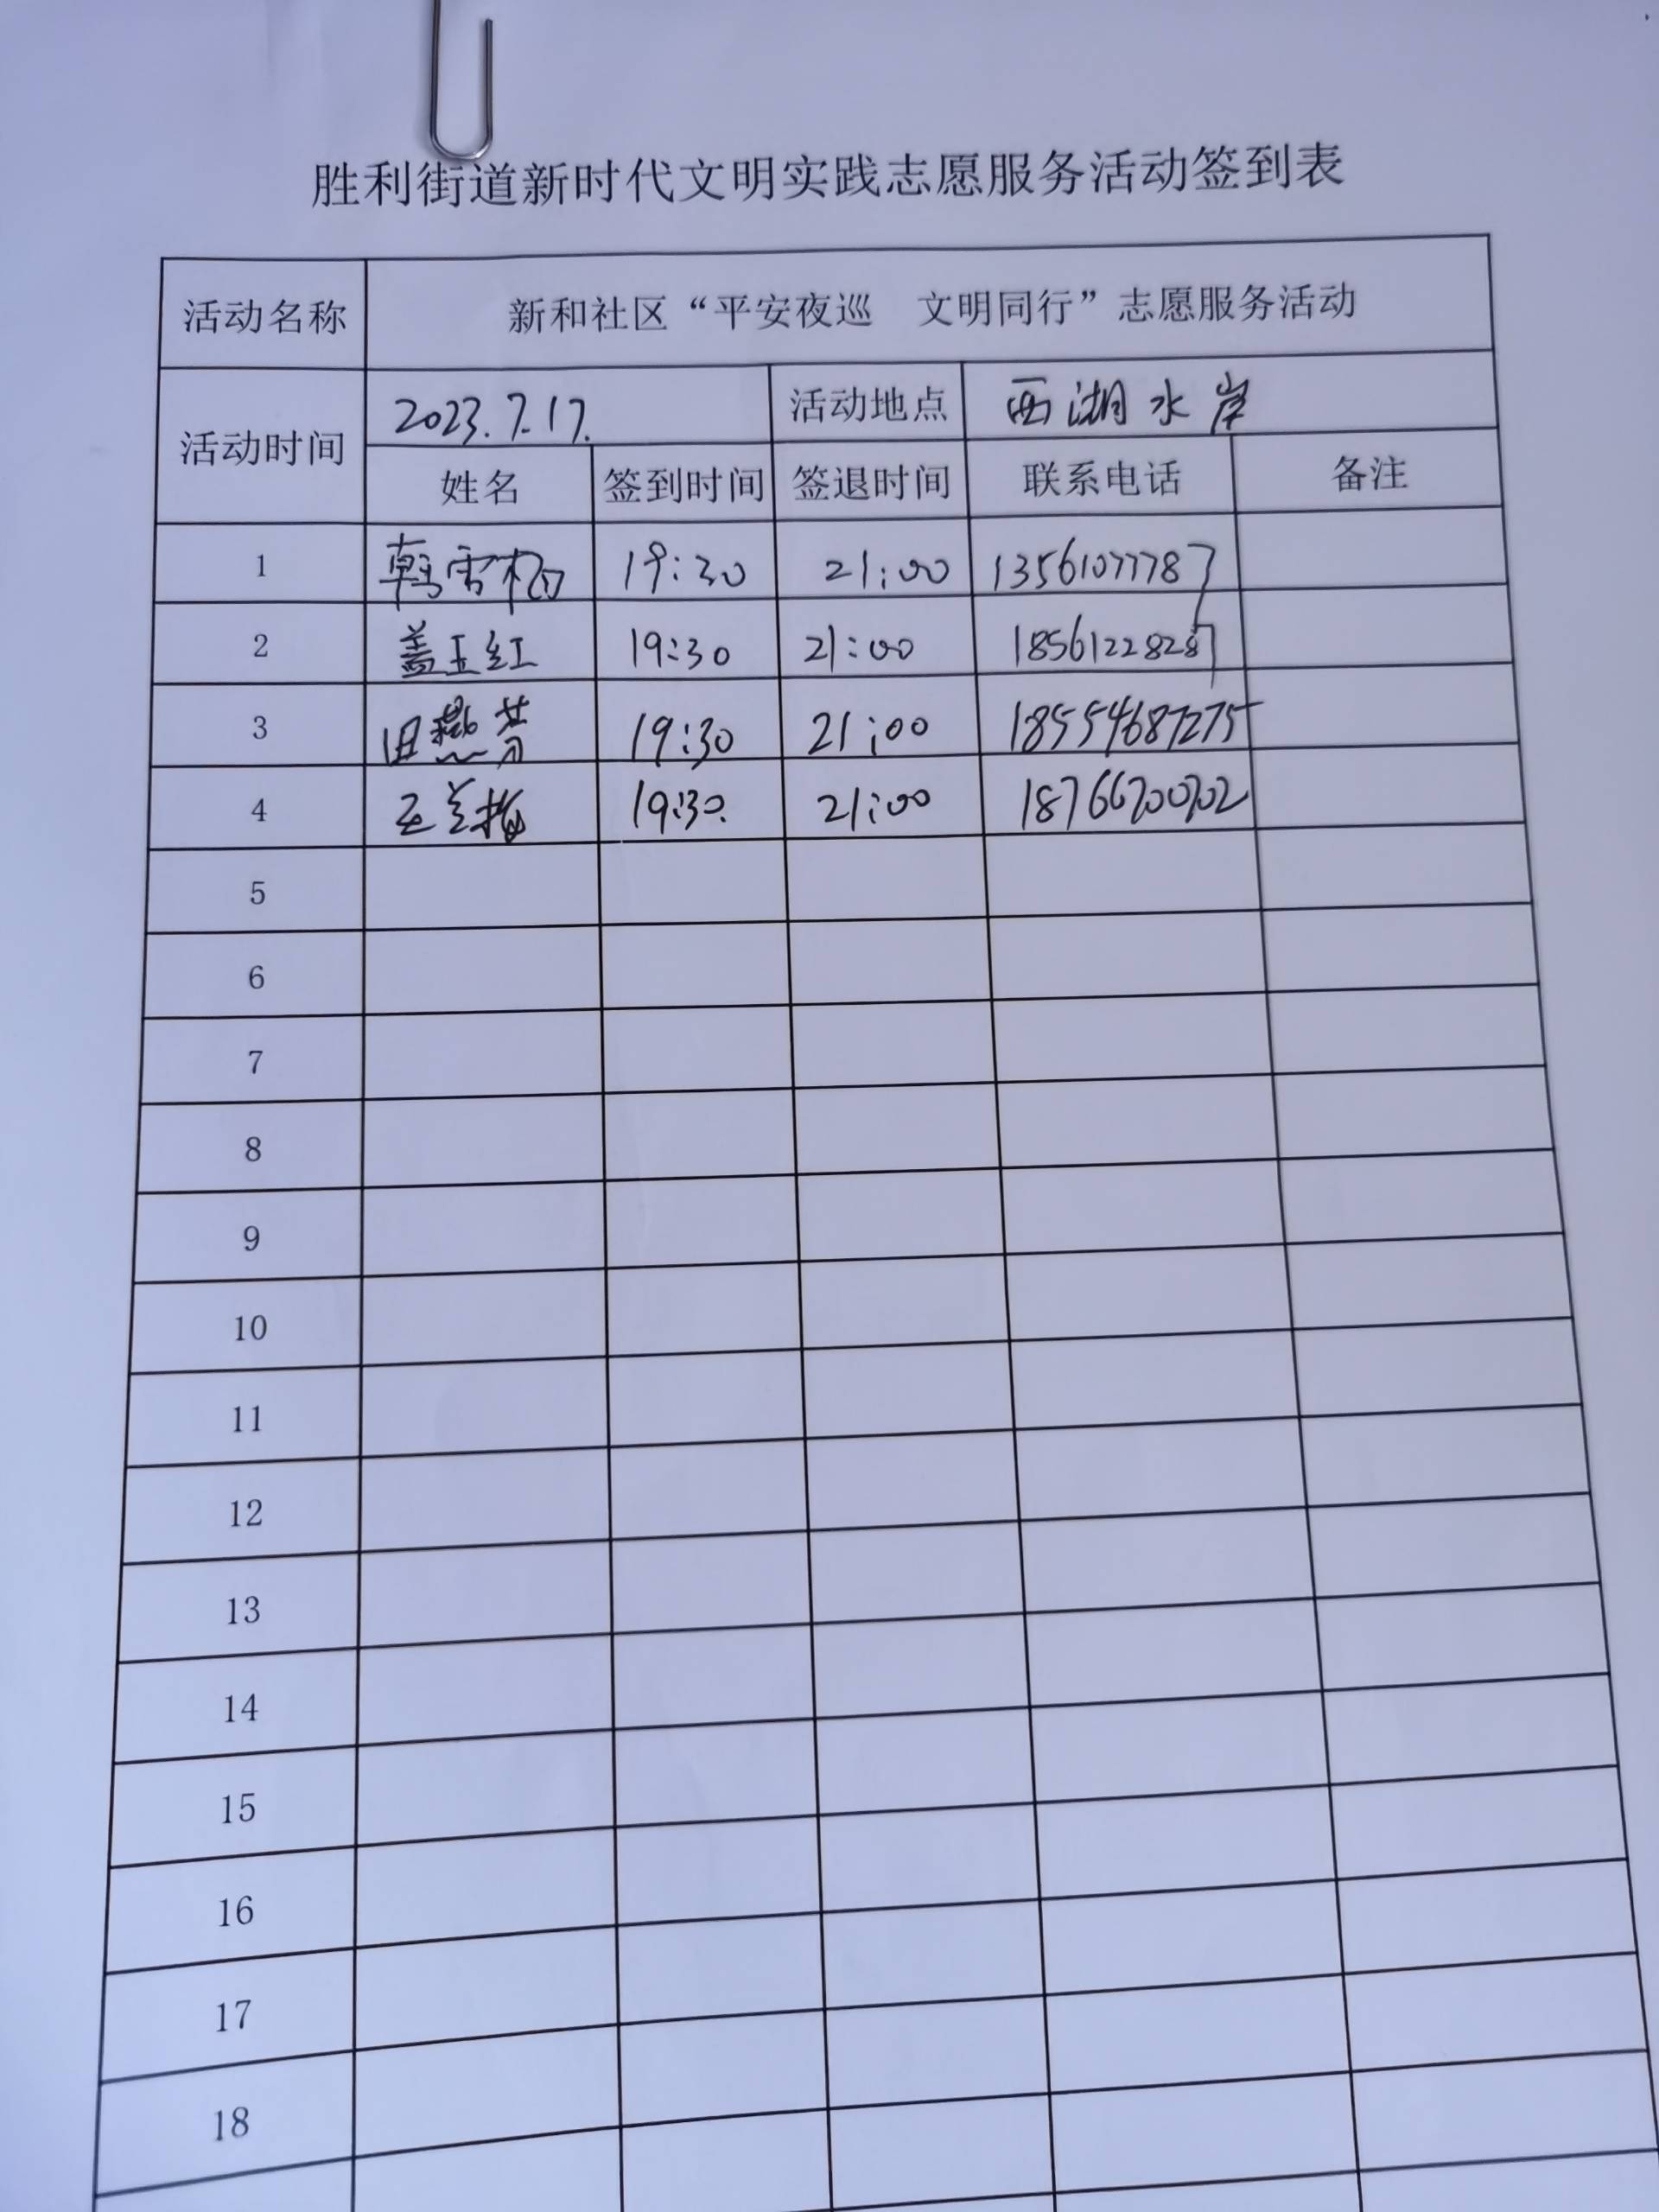 胜利街道新时代文明实践志愿服务活动签到表
活动名称 新和社区“平安夜巡 文明同行”志愿服务活动
活动时间 2023.7.17. 活动地点 西湖水岸
姓名 签到时间 签退时间 联系电话 备注
1 韩雪梅 19:30 21:00 13561077787
2 盖玉红 19:30 21:00 18561228287
3 田燕芳 19:30 21:00 18554687275
4 王兰梅 19:30. 21:00 18766700702
5
6
7
8
9
10
11
12
13
14
15
16
17
18